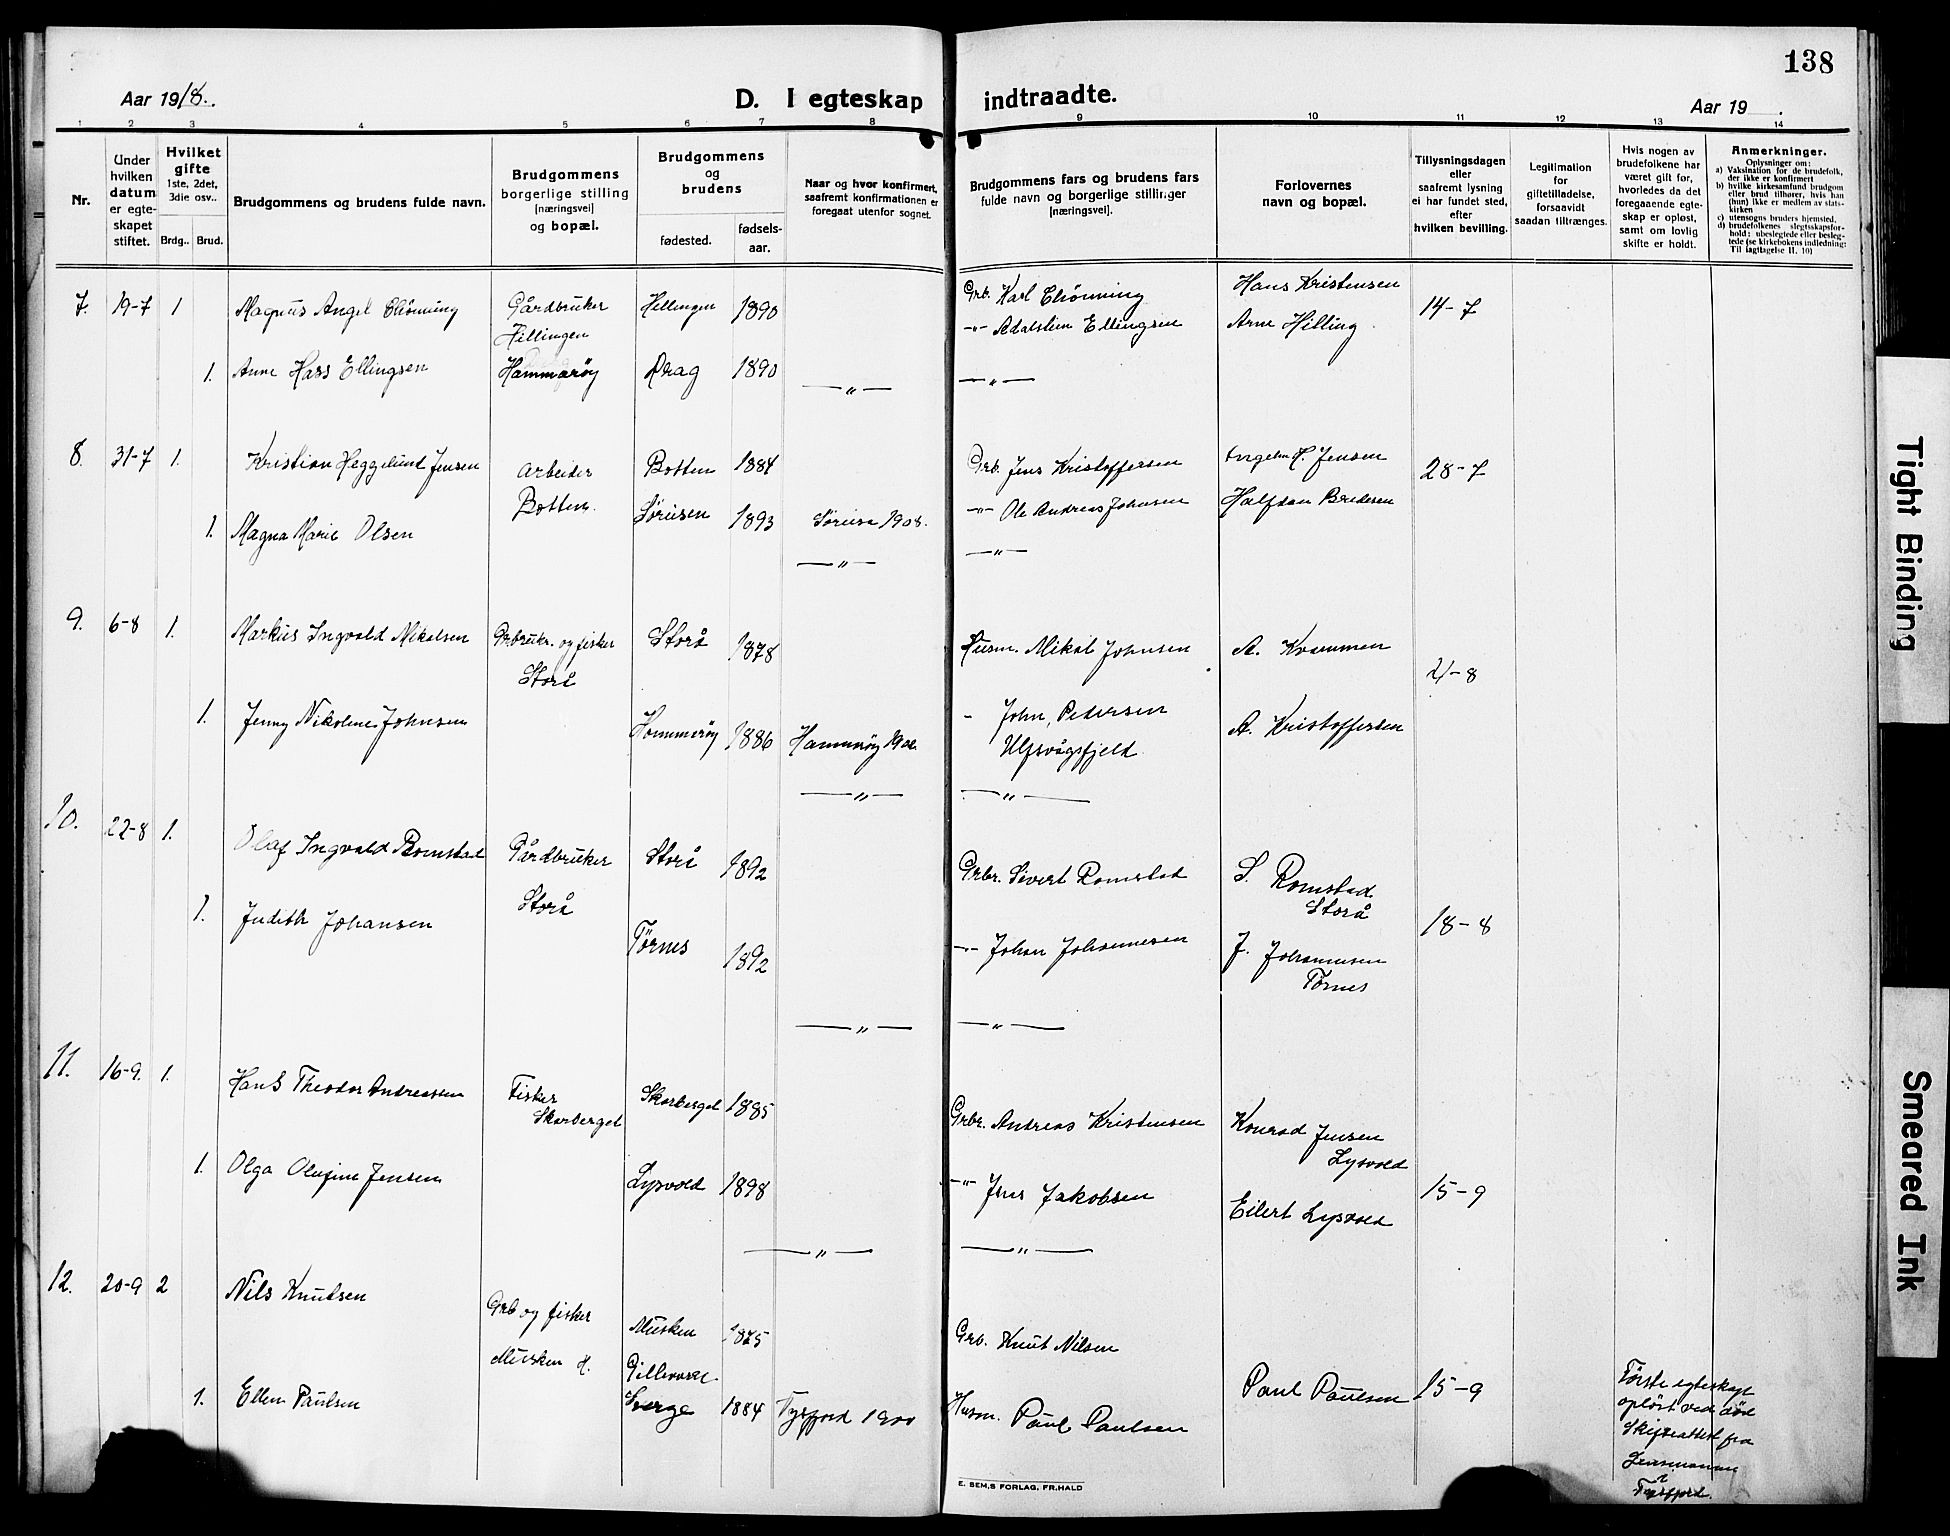 138
Aar 1918.
D. I egteskap indtraadte.
Aar 19 .
1 2 3 4 5 6 7 8 9 10 11 12 13 14
Nr.
Under hvilken datum er egte-skapet stiftet.
Hvilket gifte 1ste, 2det, 3die osv..
Brdg.. Brud.
Brudgommens og brudens fulde navn.
Brudgommens borgerlige stilling [næringsvei] og bopæl.
Brudgommens og brudens
fødested.
fødsels-aar.
Naar og hvor konfirmert, saafremt konfirmationen er foregaat utenfor sognet.
Brudgommens fars og brudens fars fulde navn og borgerlige stillinger [næringsvei].
Forlovernes navn og bopæl.
Tillysningsdagen eller saafremt lysning ei har fundet sted, efter hvilken bevilling.
Legitimation for giftetilladelse, forsaavidt saadan tiltrænges.
Hvis nogen av brudefolkene har været gift før, hvorledes da det foregaaende egte-skap er opløst, samt om lovlig skifte er holdt.
Anmerkninger.
Oplysninger om:
a) Vaksination for de brudefolk, der ikke er konfirmert
b) hvilke kirkesamfund brudgom eller brud tilhører, hvis han (hun) ikke er medlem av stats-kirken
c) utensogns bruders hjemsted,
d) brudefolkenes slegtsskapsfor-hold: ubeslegtede eller besleg-tede (se kirkebokens indledning: Til Iagttagelse II. 10)
7. 19-7 1 Magnus Angel Gårdbruker Hellingen 1890 Grb. Karl Hans Kristensen 14-7
Hillingen -"- Ellingsen Arne Hilling
1. Anne Hass Ellingsen Hammarøy Drag 1890
— " — — " —
8. 31-7 1. Kristian Heggelund Jensen Arbeider Botten 1884 Grb. Jens Kristoffersen H. Jensen 28-7
Botten. Sørüsen 1893 1908. -"- Ole Andreas Johnsen Halfdan Bredesen
1. Magna Marie Olsen
— " — — " —
9. 6-8 1. Markus Ingvald Mikalsen Grbrukr. og fisker Storå 1878 Husm. Mikal Johnsen A. Kvammen
Storå 4-8
1. Jenny Nikoline Johnsen Hammerøy 1886 Hammerøy - John, Pedersen A. Kristoffersen
Ulfsvågsfjeld
— " — — " —
10. 22-8 1. Olaf Ingvald Romstad Gårdbruker Storå 1892 Grbr. Sivert Romstad S. Romstad
Storå Storå
1. Judith Johansen Tørnes 1892 -"- Johan Johannesen J. Johannesen 18-8
Tørnes
— " — — " —
11. 16-9. 1. Hans Theodor Andreassen Fisker Skarberget 1885 Grbr. Andreas Kristensen Konrad Jensen
Skarberget Lysvold
1. Olga Olufine Jensen Lysvold 1898 -"- Jens Jakobsen Eilert Lysvold 15-9
— " — — " —
12. 20-9 2 Nils Knutsen Grb og fisker Musken 1875 Grb. Knut Nilsen
Musken H.
1. Ellen Paulsen Sverge 1884 Tysfjord 1900 Husm. Paul Paulsen Paul Paulsen 15-9
Første egteskap
opløst ved død
Skifteattest fra
Lensmannen
i
Tysfjord.
E. SEM,S FORLAG, FR.HALD
Tight Binding
Smeared Ink